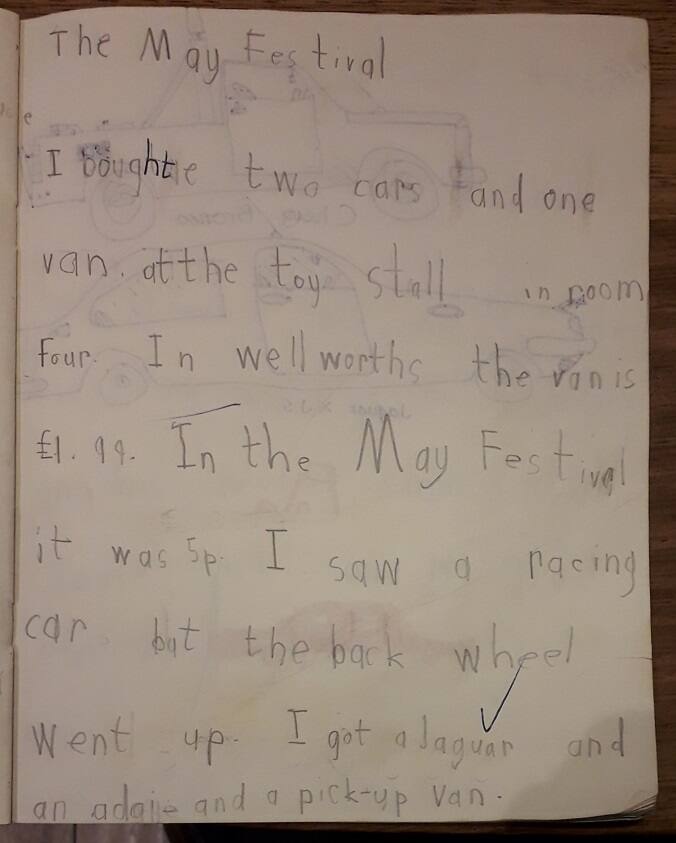 The May Festival
I bought two cars and one
van. at the toy stall in room
four. In wellworths the van is
£1.99. In the May Festival
it was 5p. I saw a racing
car but the back wheel
went up. I got a Jaguar and
an and a pick-up van.